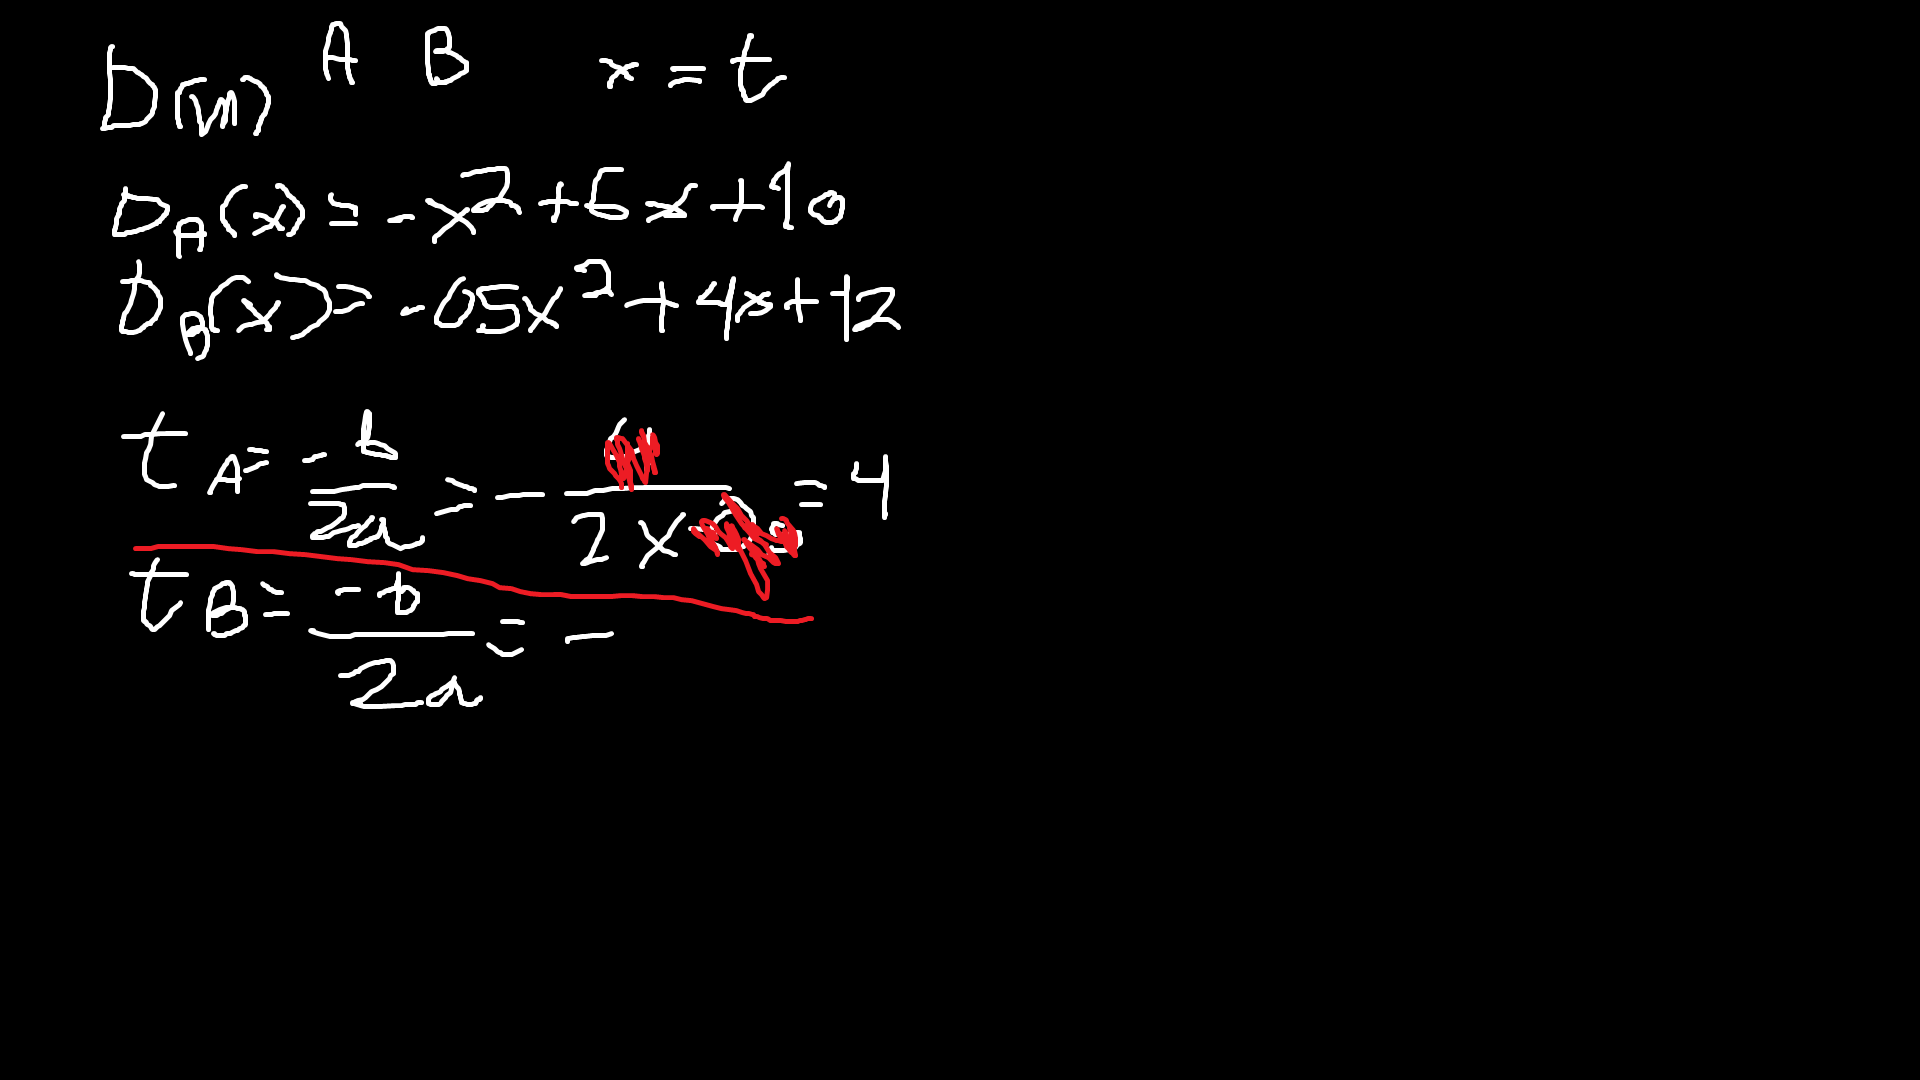 D(m) A B x = t
D_A(x) = -x² + 6x + 10
D_B(x) = -0.5x² + 4x + 12
t_A = -b/2a = - /2 x = 4
t_B = -b/2a = -